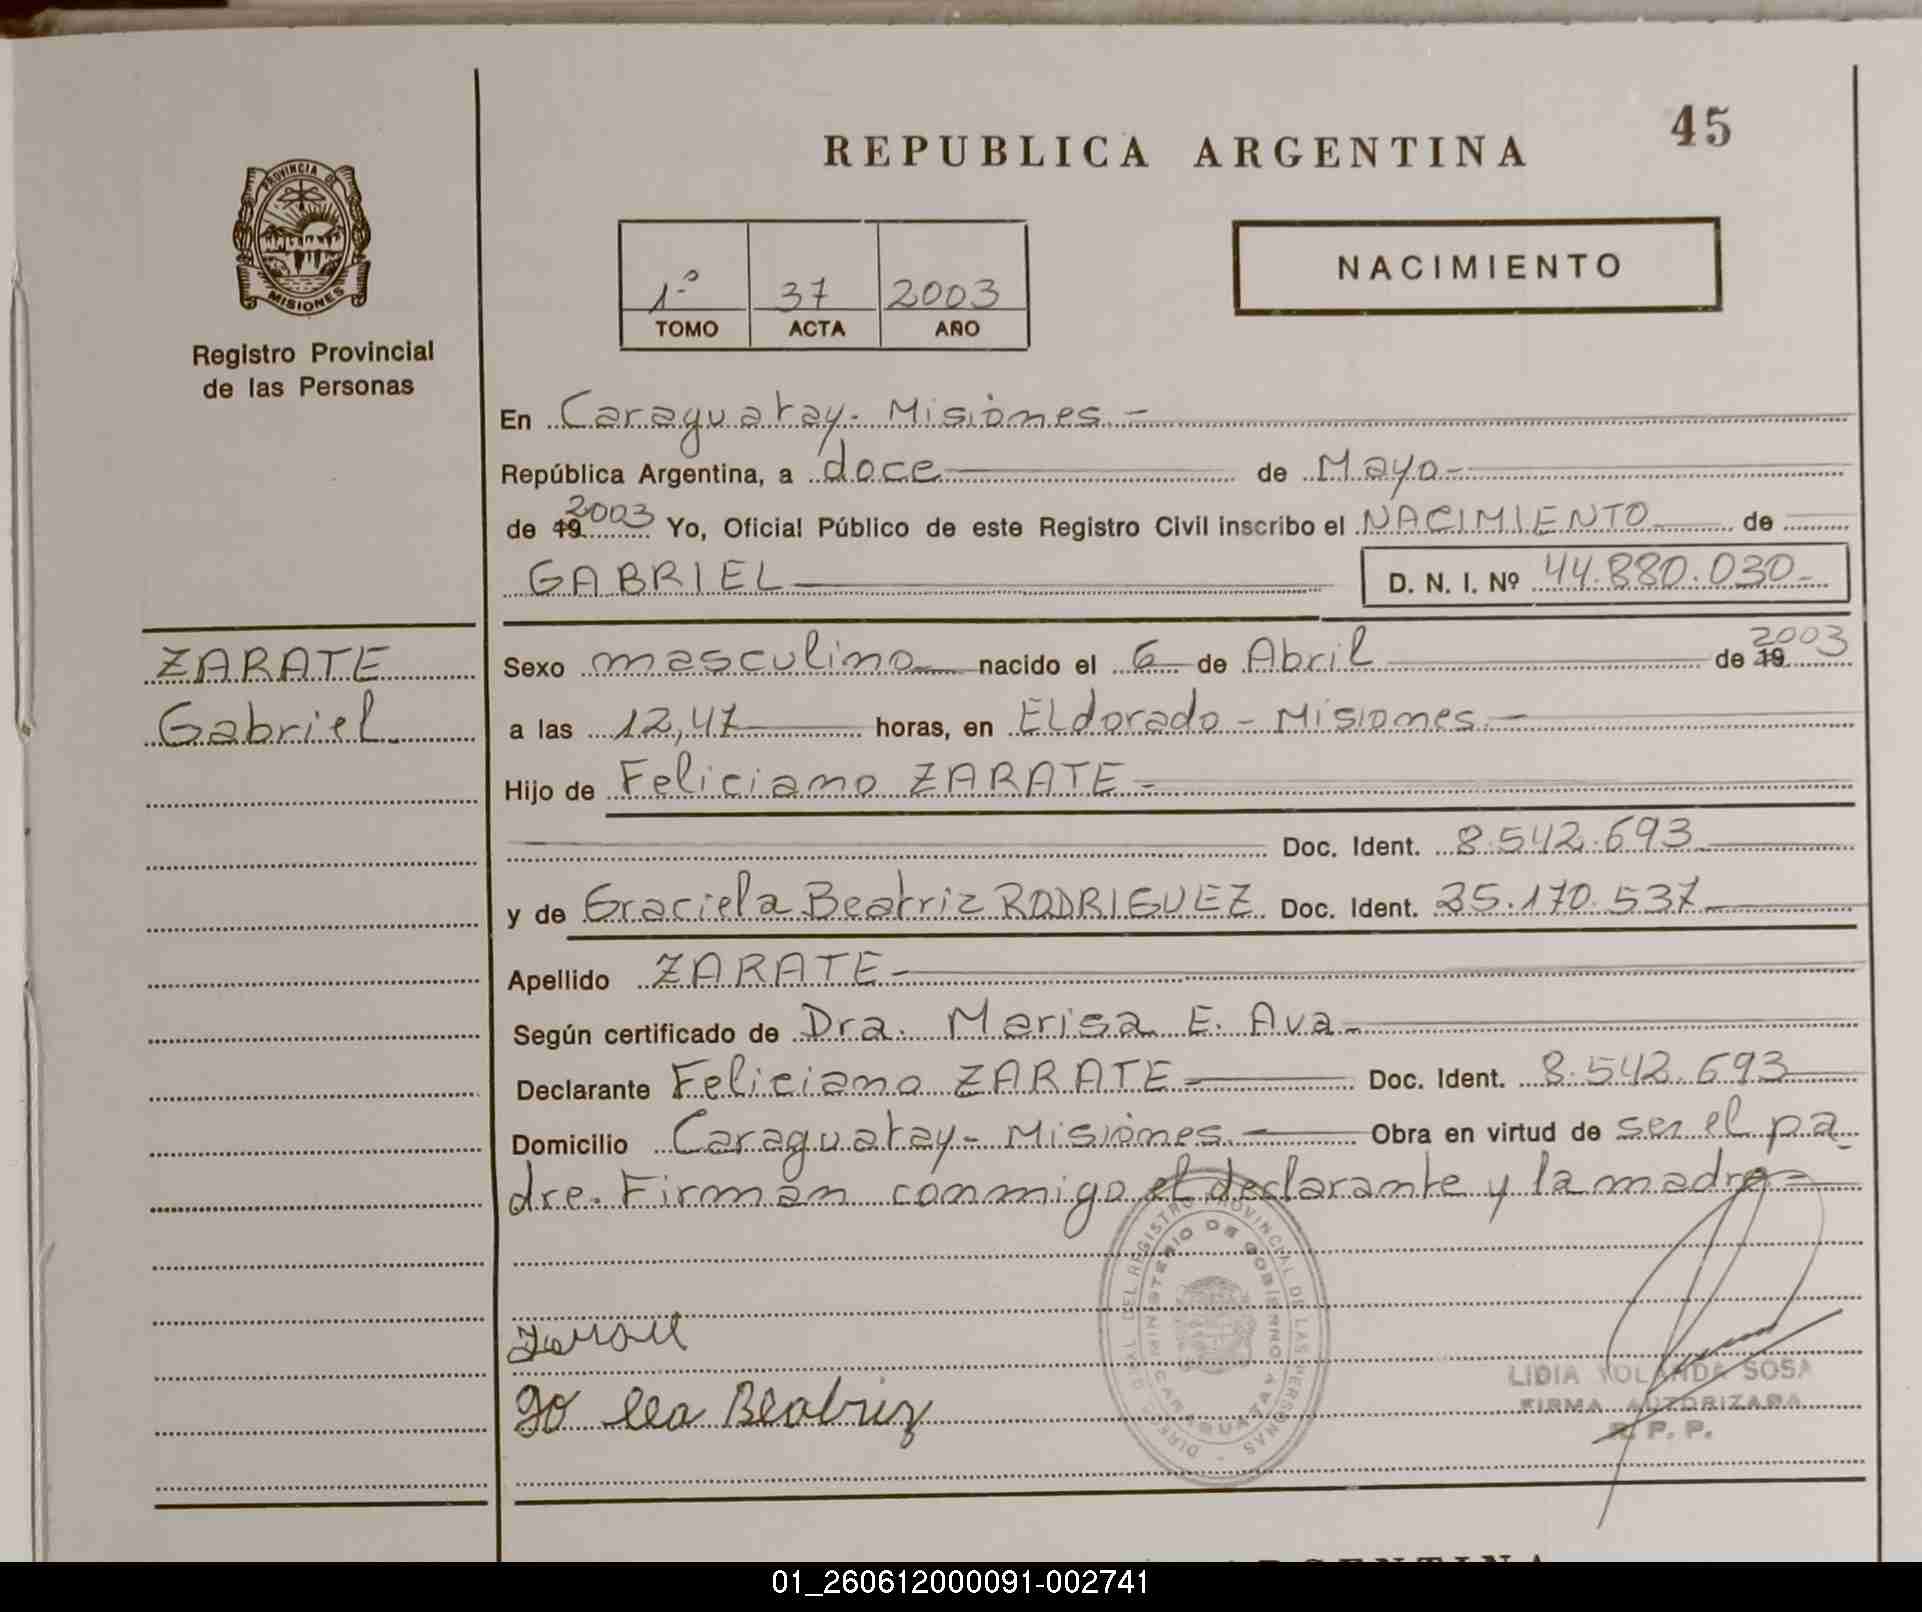 45
REPUBLICA ARGENTINA
PROVINCIA DE
MISIONES
Registro Provincial
de las Personas
1º 37 2003
TOMO ACTA AÑO
NACIMIENTO
En Caraguatay - Misiones -
República Argentina, a doce de Mayo -
de 19 2003 Yo, Oficial Público de este Registro Civil inscribo el NACIMIENTO de
GABRIEL D. N. I. Nº 44.880.030 -
ZARATE
Gabriel
Sexo masculino nacido el 6 de Abril de 19 2003
a las 12,47 horas, en Eldorado - Misiones -
Hijo de Feliciano ZARATE -
Doc. Ident. 8.542.693
y de Graciela Beatriz RODRIGUEZ Doc. Ident. 35.170.537
Apellido ZARATE -
Según certificado de Dra. Marisa E. Ava -
Declarante Feliciano ZARATE Doc. Ident. 8.542.693
Domicilio Caraguatay - Misiones - Obra en virtud de ser el pa-
dre. Firman conmigo el declarante y la madre -
DEL REGISTRO PROVINCIAL DE LAS PERSONAS
MINISTERIO DE GOBIERNO
CARAGUATAY
Beatriz
LIDIA YOLANDA SOSA
FIRMA AUTORIZADA
R. P. P.
ARGENTINA
01_260612000091-002741